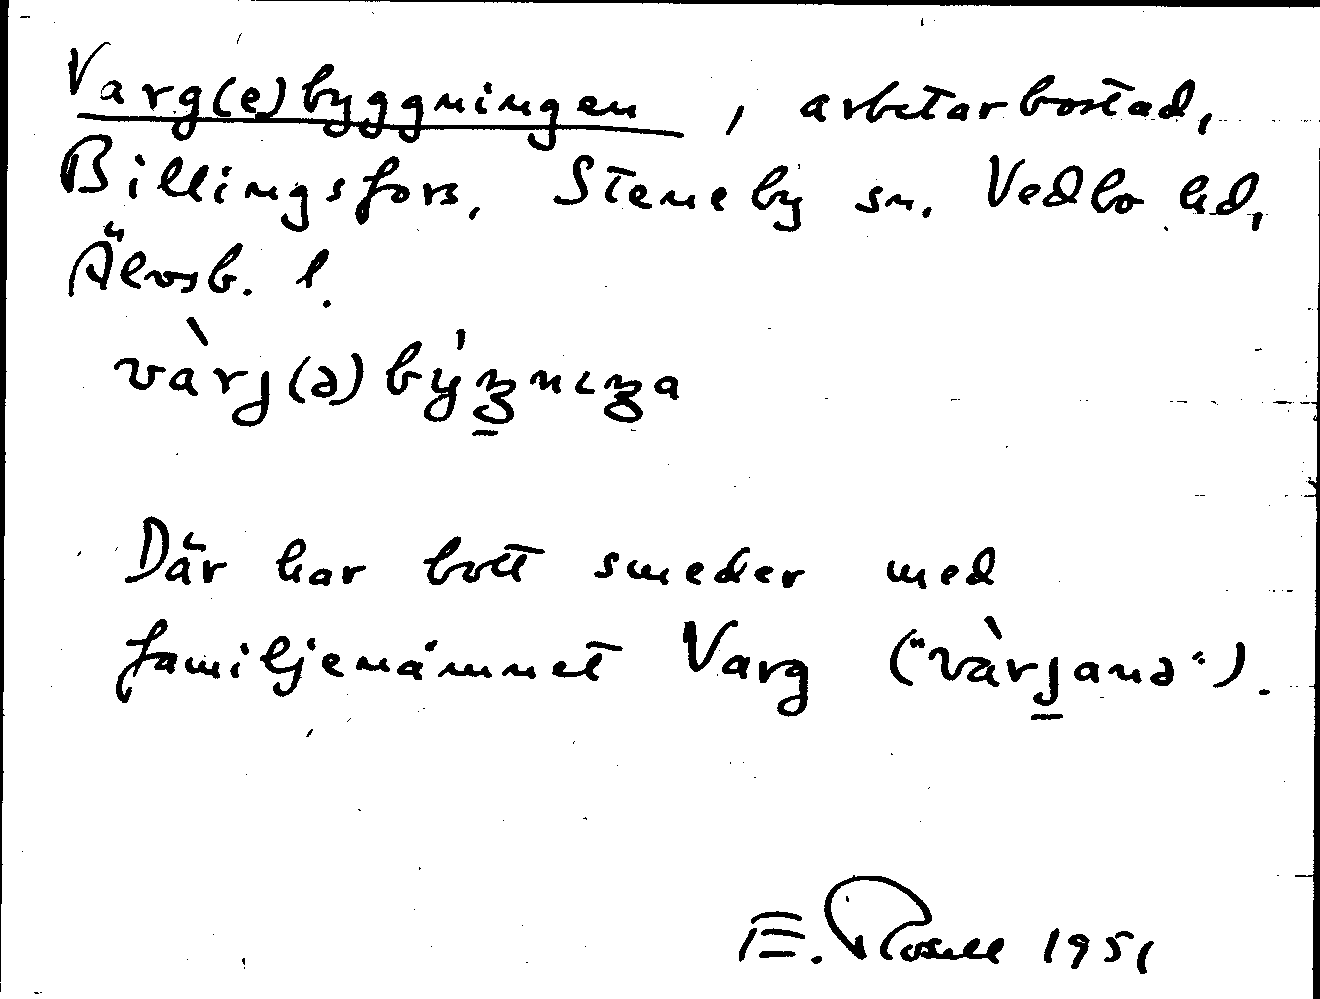 Varg(e)byggningen, arbetarbostad,
Billingsfors, Steneby sn. Vedbo hd,
Älvsb. l.
vàrj(ə)bý𝑔nɩ𝑔a
Där har bott smeder med
familjenamnet Varg ("vàrjanə").
E. Rosell 1951